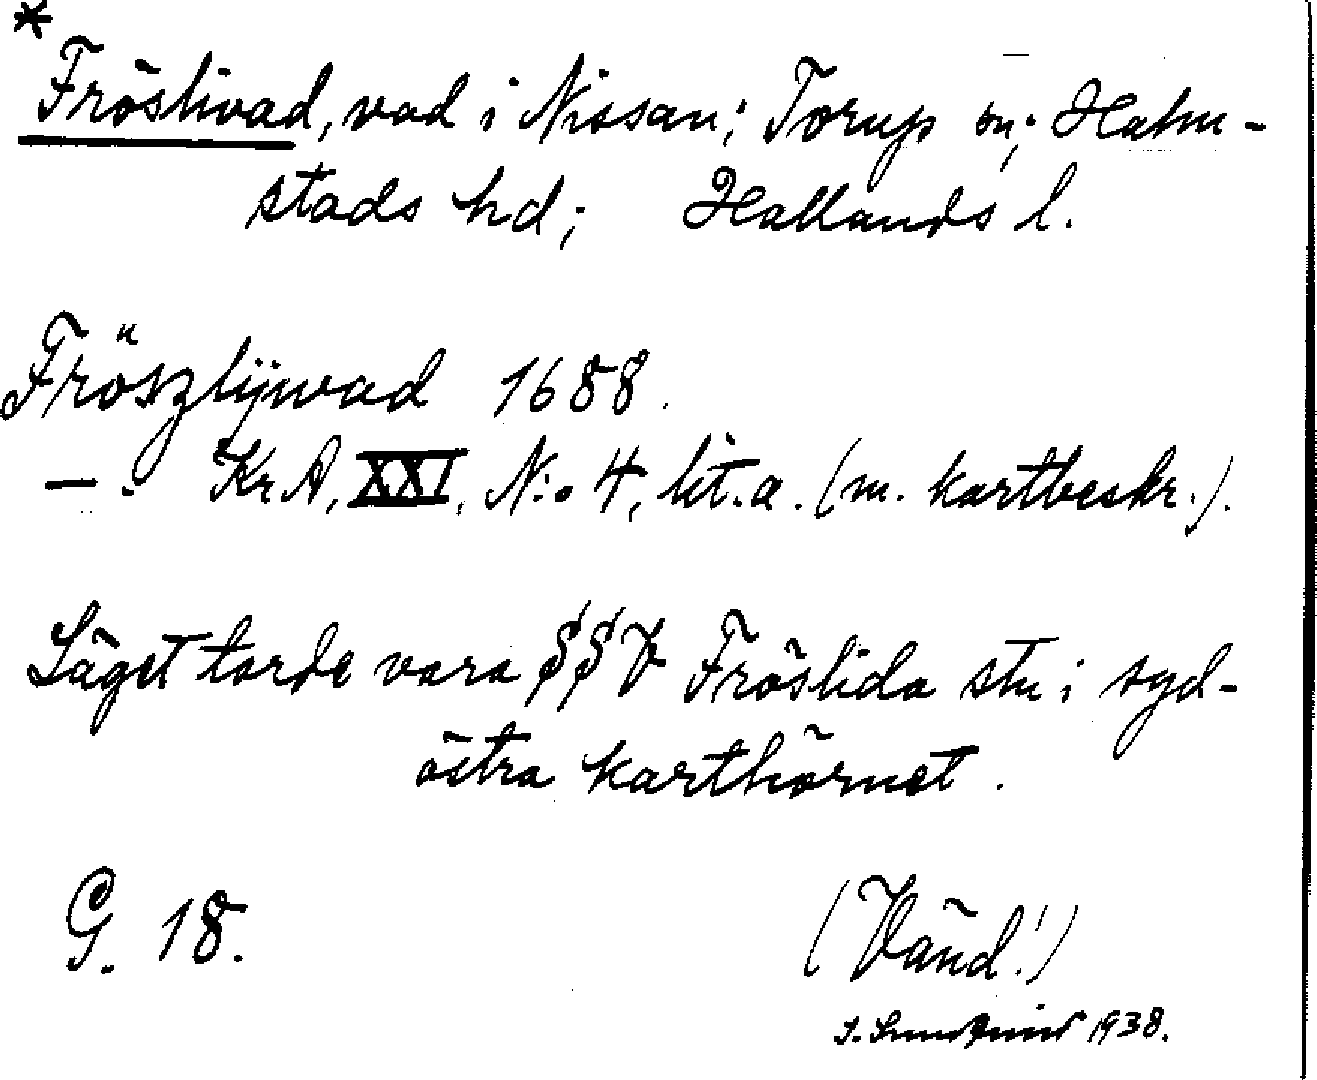 *
Fröslivad, vad i Nissan; Torup sn; Halm-
stads hd; Hallands l.
Fröszlijwad 1688.
— : KrA, XXI, N:o 4, lit. a. (m. kartbeskr.).
Läget torde vara §§V Fröslida stn i syd-
östra karthörnet.
G. 18.
(Vänd!)
1938.